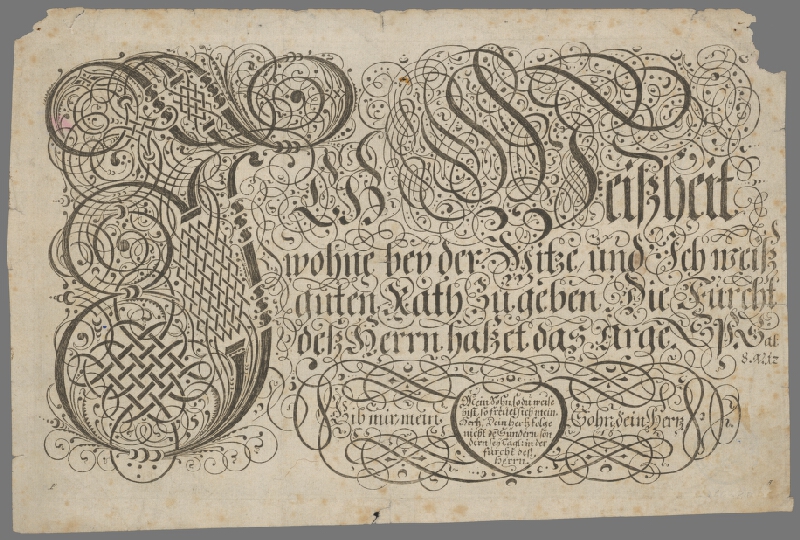 ICH Weißheit
wohne bey der Witze, und Ich weiß
guten Rath zu geben. Die Furcht
deß Herrn haßet das Arge Sp. Sal.
8. v. 12
Gib mir mein Sohn dein Hertz
Mein Sohn so du weise
bist, so freuet sich mein
Hertz. Dein hertz folge
nicht den Sündern, son
dern sey täglich in der
furcht des
Herrn.